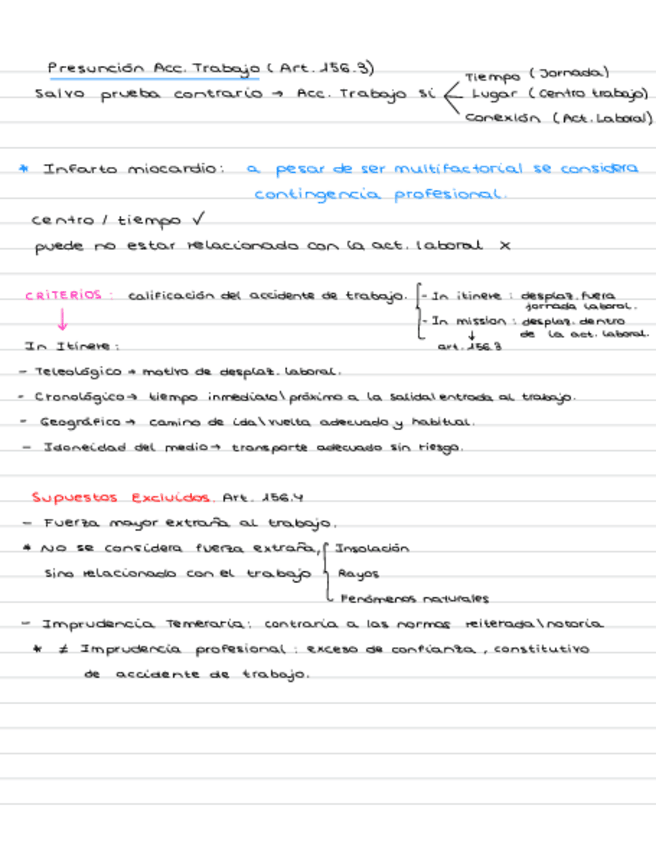 Presunción Acc. Trabajo (Art. 156.3)
Salvo prueba contrario → Acc. Trabajo si
Tiempo (Jornada)
Lugar (centro trabajo)
Conexión (Act. Laboral)
* Infarto miocardio: a pesar de ser multifactorial se considera
contingencia profesional.
centro / tiempo ✓
puede no estar relacionado con la act. laboral x
CRITERIOS: calificación del accidente de trabajo.
- In itinere: desplaz. fuera
jornada laboral.
- In mission: desplaz. dentro
de la act. laboral.
↓
art. 156.3
↓
In Itinere:
- Teleológico → motivo de desplaz. laboral.
- Cronológico → tiempo inmediato\próximo a la salida\entrada al trabajo.
- Geográfico → camino de ida\vuelta adecuado y habitual.
- Idoneidad del medio → transporte adecuado sin riesgo.
Supuestos Excluidos. Art. 156.4
- Fuerza mayor extraña al trabajo.
* No se considera fuerza extraña,
sino relacionado con el trabajo
Insolación
Rayos
Fenómenos naturales
- Imprudencia Temeraria: contraria a las normas reiterada\notoria
* ≠ Imprudencia profesional: exceso de confianza, constitutivo
de accidente de trabajo.